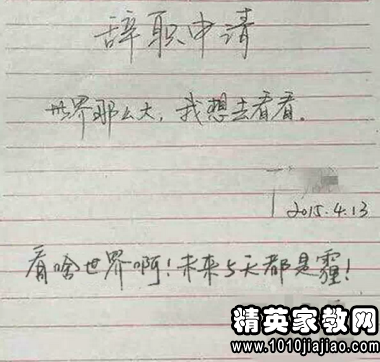 辞职申请
世界那么大，我想去看看.
2015.4.13
看啥世界啊！未来5天都是霾！
精英家教网
www.1010jiajiao.com